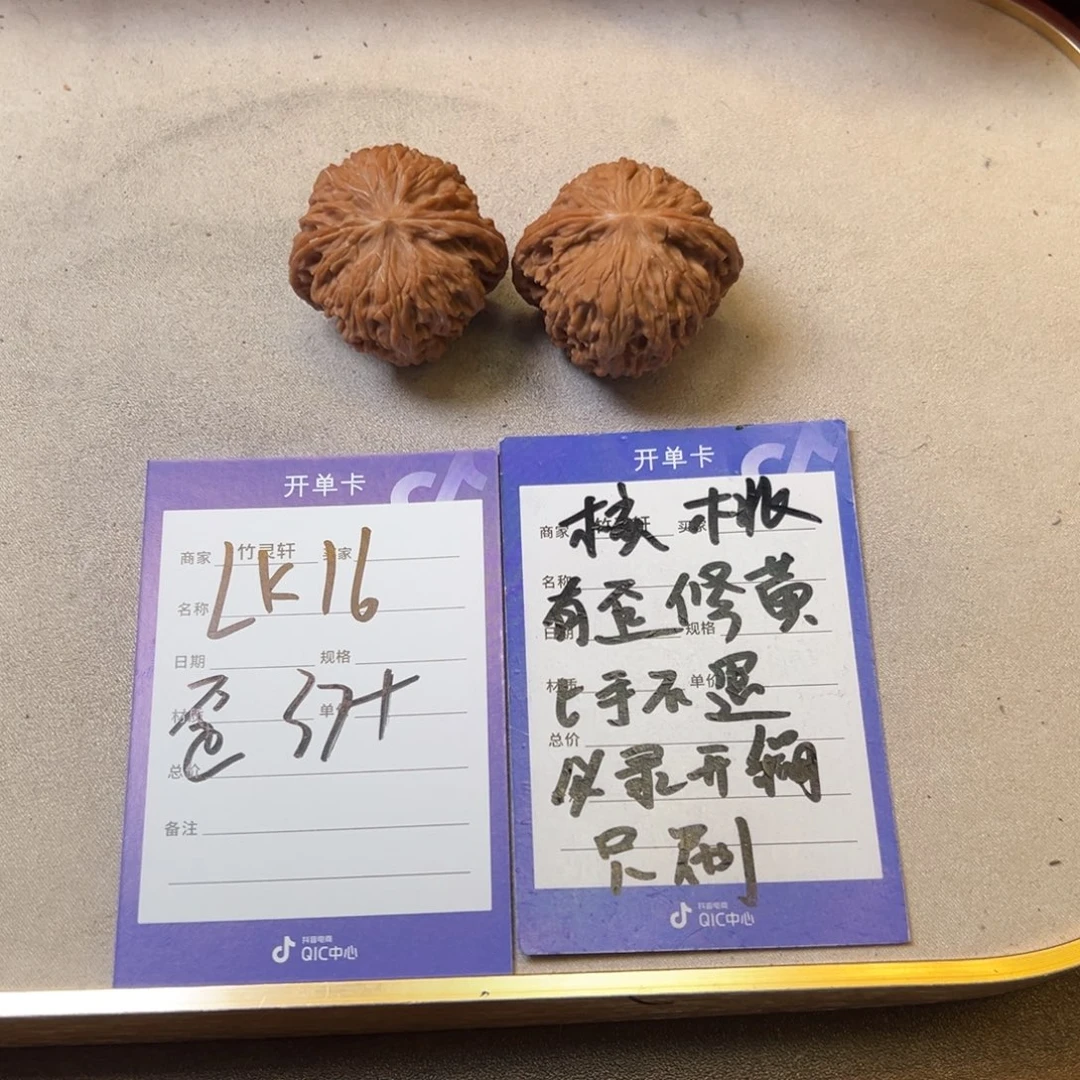 开单卡
商家 竹灵轩 买家
LK16
名称
日期 规格
歪 37+
材质 单价
总价
备注
抖音电商
QIC中心
开单卡
商家 竹灵轩 买家
核桃
名称
有歪修黄
日期 规格
上手不退
材质 单价
总价
必录开箱
只刷
抖音电商
QIC中心